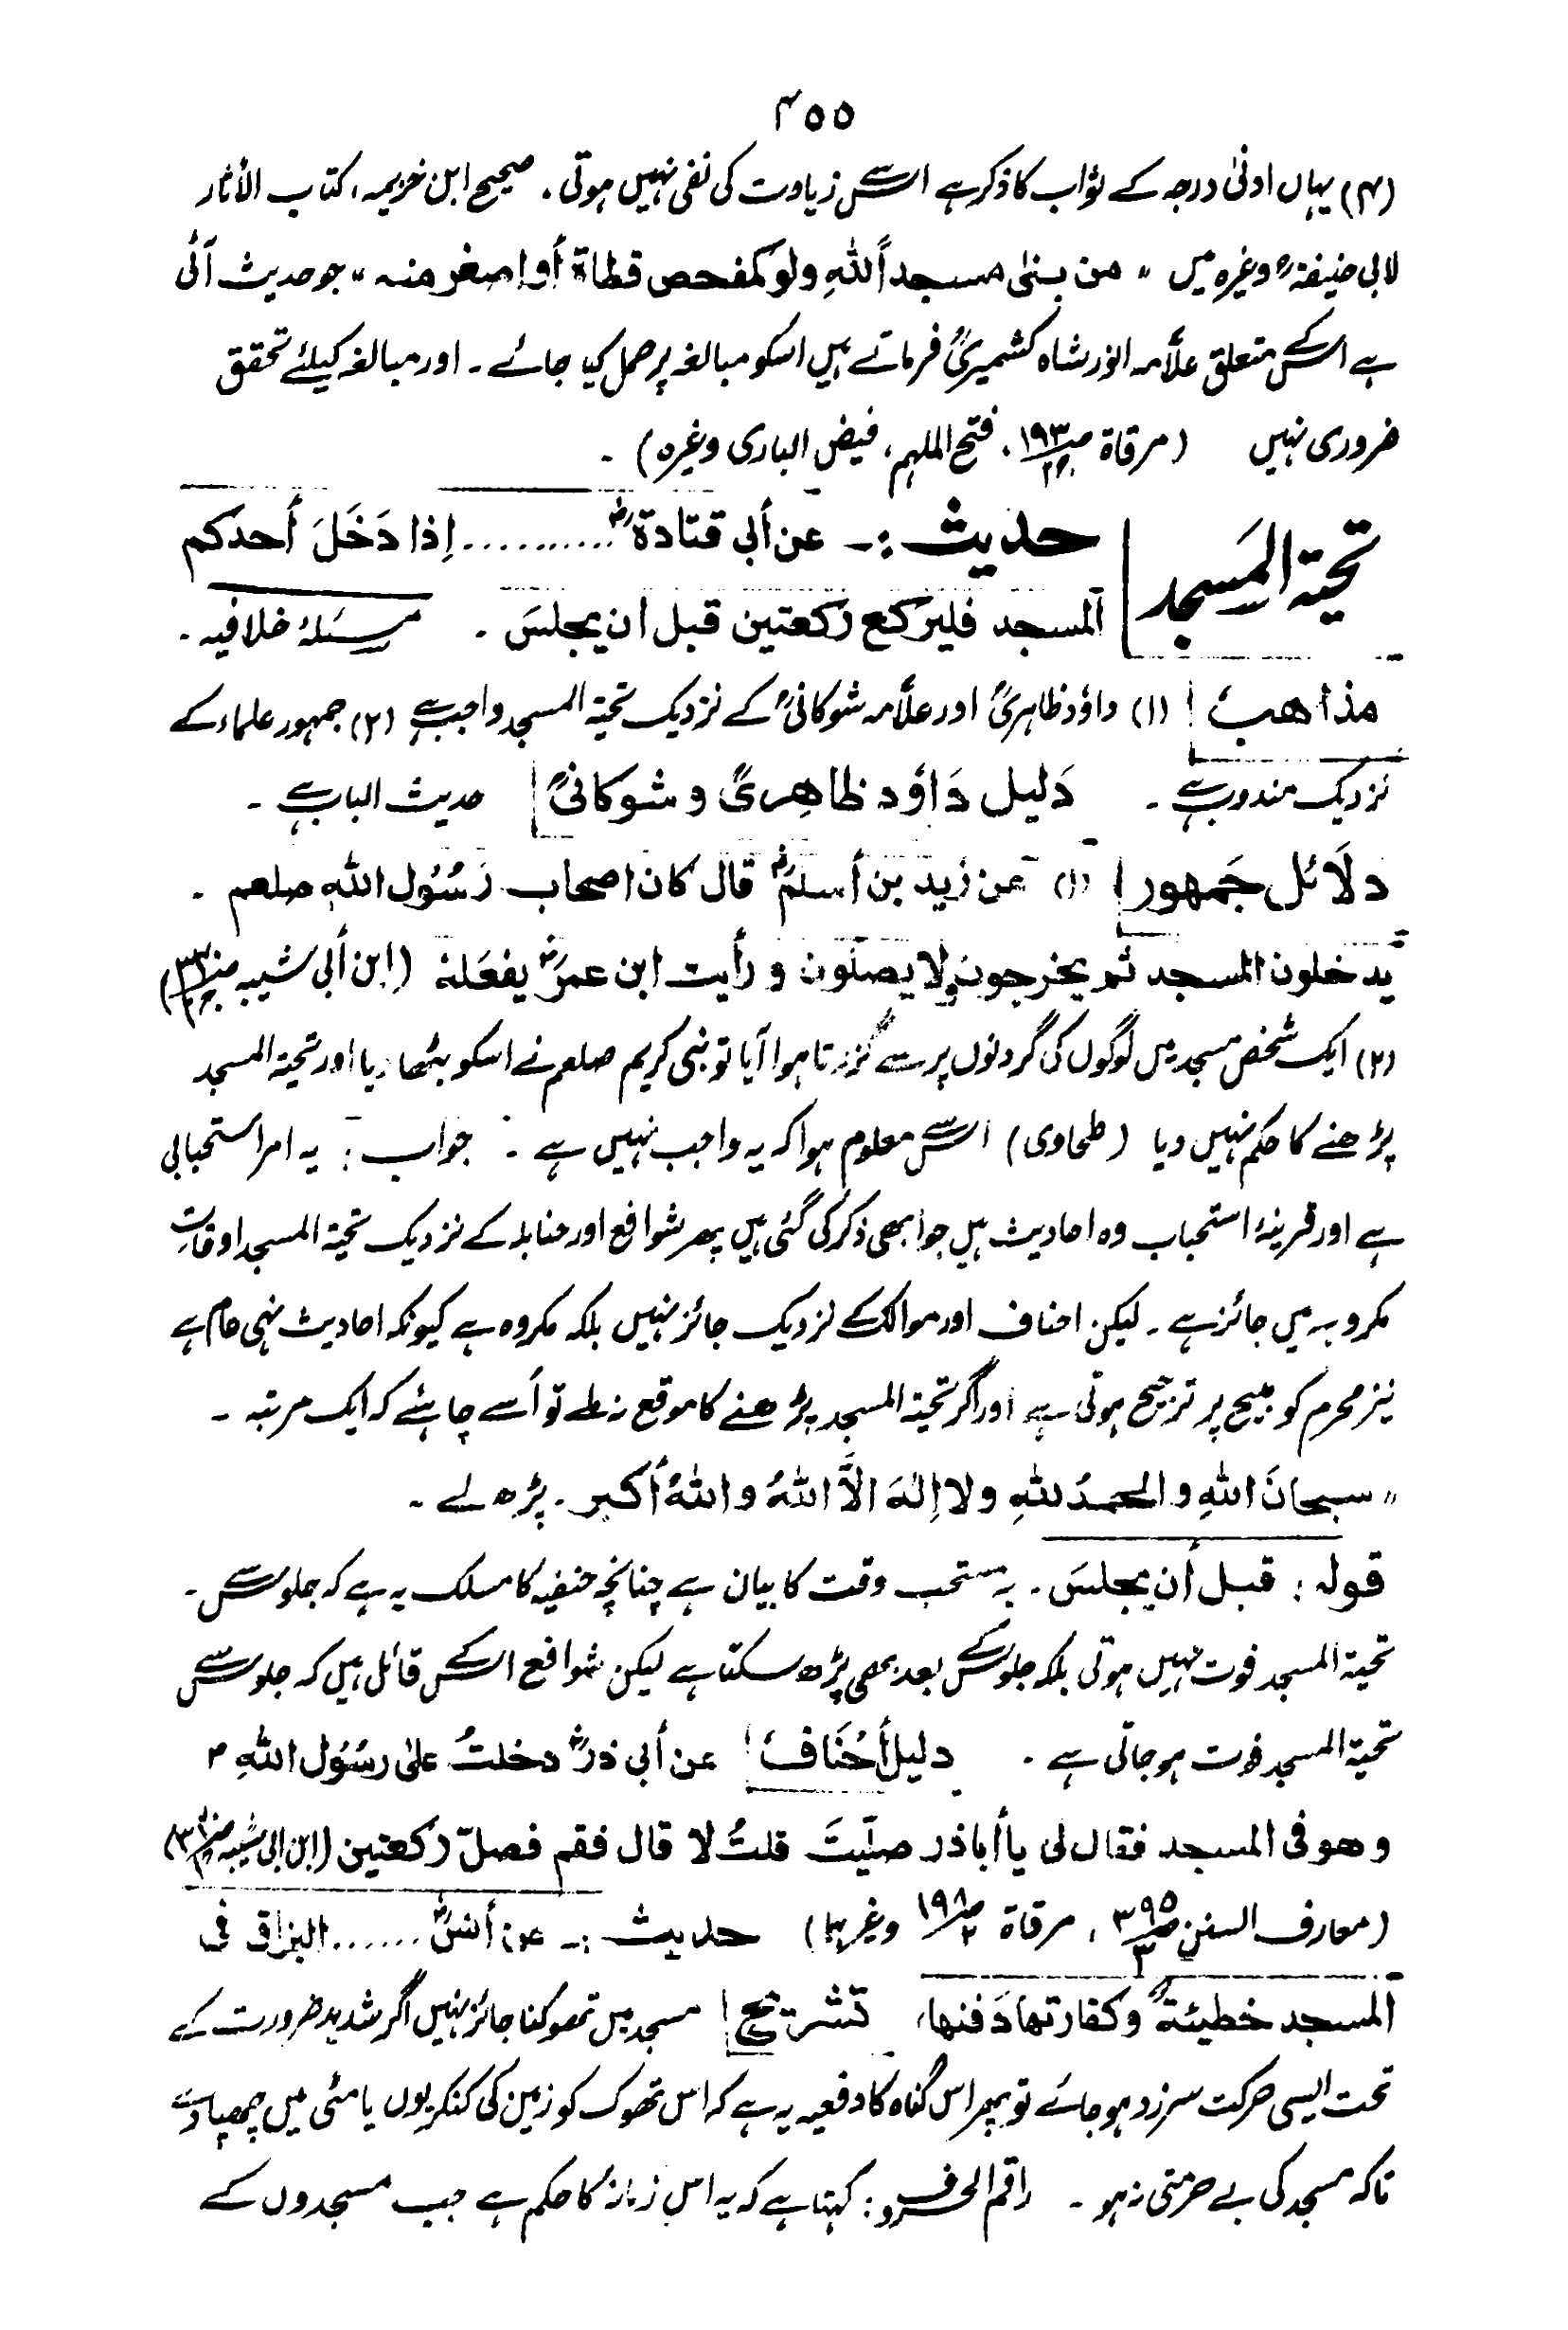 ۴۵۵
(۴) یہاں ادنیٰ درجہ کے ثواب کا ذکر ہے اس سے زیادت کی نفی نہیں ہوتی ۔ صحیح ابن خزیمہ ، کتاب الأثار
لابی حنیفۃؒ وغیرہ میں " من بنیٰ مسجداً للهِ ولو كمفحص قطاة أو اصغر منه " جو حدیث آئی
ہے اس کے متعلق علاّمہ انور شاہ کشمیریؒ فرماتے ہیں اسکو مبالغہ پر حمل کیا جائے ۔ اور مبالغہ کیلئے تحقق
ضروری نہیں (مرقاۃ ص۱۹۳ ، فتح الملہم ، فیض الباری وغیرہ) ۔
تحیۃ المَسجد
حدیث :۔ عن أبی قتادة رض .......... إذا دَخَلَ أحدكم
المسجد فليركع ركعتين قبل ان يجلسَ ۔ مسئلۂ خلافیہ ۔
مذاھب (۱) داؤد ظاہریؒ اور علاّمہ شوکانیؒ کے نزدیک تحیۃ المسجد واجب ہے (۲) جمہور علماء کے
نزدیک مندوب ہے ۔ دَلیل دَاؤد ظاھِریؒ و شوکانیؒ حدیث الباب ہے ۔
دلَائل جَمہور (۱) عن زيد بن أسلمؓ قال كان اصحاب رَسُوْل اللهِ صلعم ۔
يدخلون المسجد ثم يخرجون ولا يصلّون و رأيت ابن عمرَؓ يفعَله (ابن أبی شیبہ
(۲) ایک شخص مسجد میں لوگوں کی گردنوں پر سے گزرتا ہوا آیا تو نبی کریم صلعم نے اسکو بٹھا دیا اور تحیۃ المسجد
پڑھنے کا حکم نہیں دیا (طحاوی) اس سے معلوم ہوا کہ یہ واجب نہیں ہے ۔ جواب : یہ امر استحبابی
ہے اور قرینۂ استحباب وہ احادیث ہیں جو ابھی ذکر کی گئی ہیں پھر شوافع اور حنابلہ کے نزدیک تحیۃ المسجد اوقاتِ
مکروہہ میں جائز ہے ۔ لیکن احناف اور موالک کے نزدیک جائز نہیں بلکہ مکروہ ہے کیونکہ احادیث نہی عام ہے
نیز محرم کو مبیح پر ترجیح ہوتی ہے اور اگر تحیۃ المسجد پڑھنے کا موقع نہ ملے تو اُسے چاہئے کہ ایک مرتبہ ۔
" سبحانَ اللهِ و الحمدُ للهِ ولا إلهَ الاَّ اللهُ و اللهُ أكبر ۔ پڑھ لے ۔
قولہ : قبل أن يجلسَ ۔ یہ مستحب وقت کا بیان ہے چنانچہ حنفیہ کا مسلک یہ ہے کہ جلوس سے ۔
تحیۃ المسجد فوت نہیں ہوتی بلکہ جلوس کے بعد بھی پڑھ سکتا ہے لیکن شوافع اس کے قائل ہیں کہ جلوس سے
تحیۃ المسجد فوت ہو جاتی ہے ۔ دلیل أَحْنَاف عن أبی ذرؓ دخلتُ علیٰ رسُوْل اللهِ ؐ
و هو فی المسجد فقال لی یا أبا ذر صلّيتَ قلتُ لا قال فقم فصلّ ركعتين (ابن ابی شیبہ
(معارف السنن ص۳۹۵/۳ ، مرقاۃ ص۱۹۸/۲ وغیرہا) حدیث :۔ عن أنسؓ ...... البزاق فی
المسجد خطيئةٌ وكفارتها دَفنها ، تشریح مسجد میں تھوکنا جائز نہیں اگر شدید ضرورت کے
تحت ایسی حرکت سرزد ہو جائے تو پھر اس گناہ کا دفعیہ یہ ہے کہ اس تھوک کو زمین کی کنکریوں یا مٹی میں چھپا دے
تاکہ مسجد کی بے حرمتی نہ ہو ۔ راقم الحروف : کہتا ہے کہ یہ اس زمانہ کا حکم ہے جب مسجدوں کے